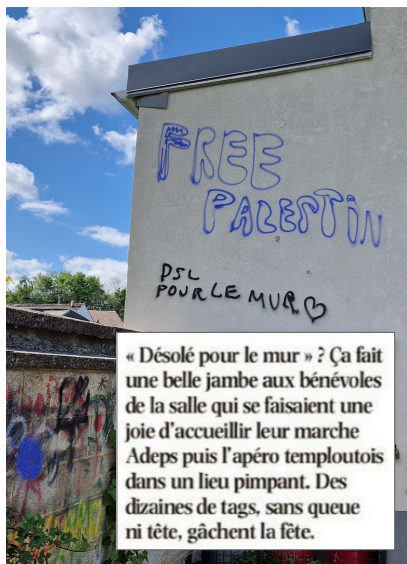 FREE
PALESTIN
DSL
POUR LE MUR
« Désolé pour le mur » ? Ça fait
une belle jambe aux bénévoles
de la salle qui se faisaient une
joie d'accueillir leur marche
Adeps puis l'apéro temploutois
dans un lieu pimpant. Des
dizaines de tags, sans queue
ni tête, gâchent la fête.